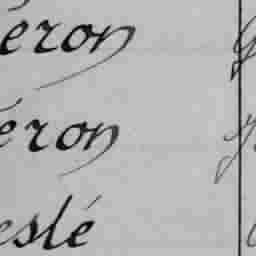 éron
éron
eslé